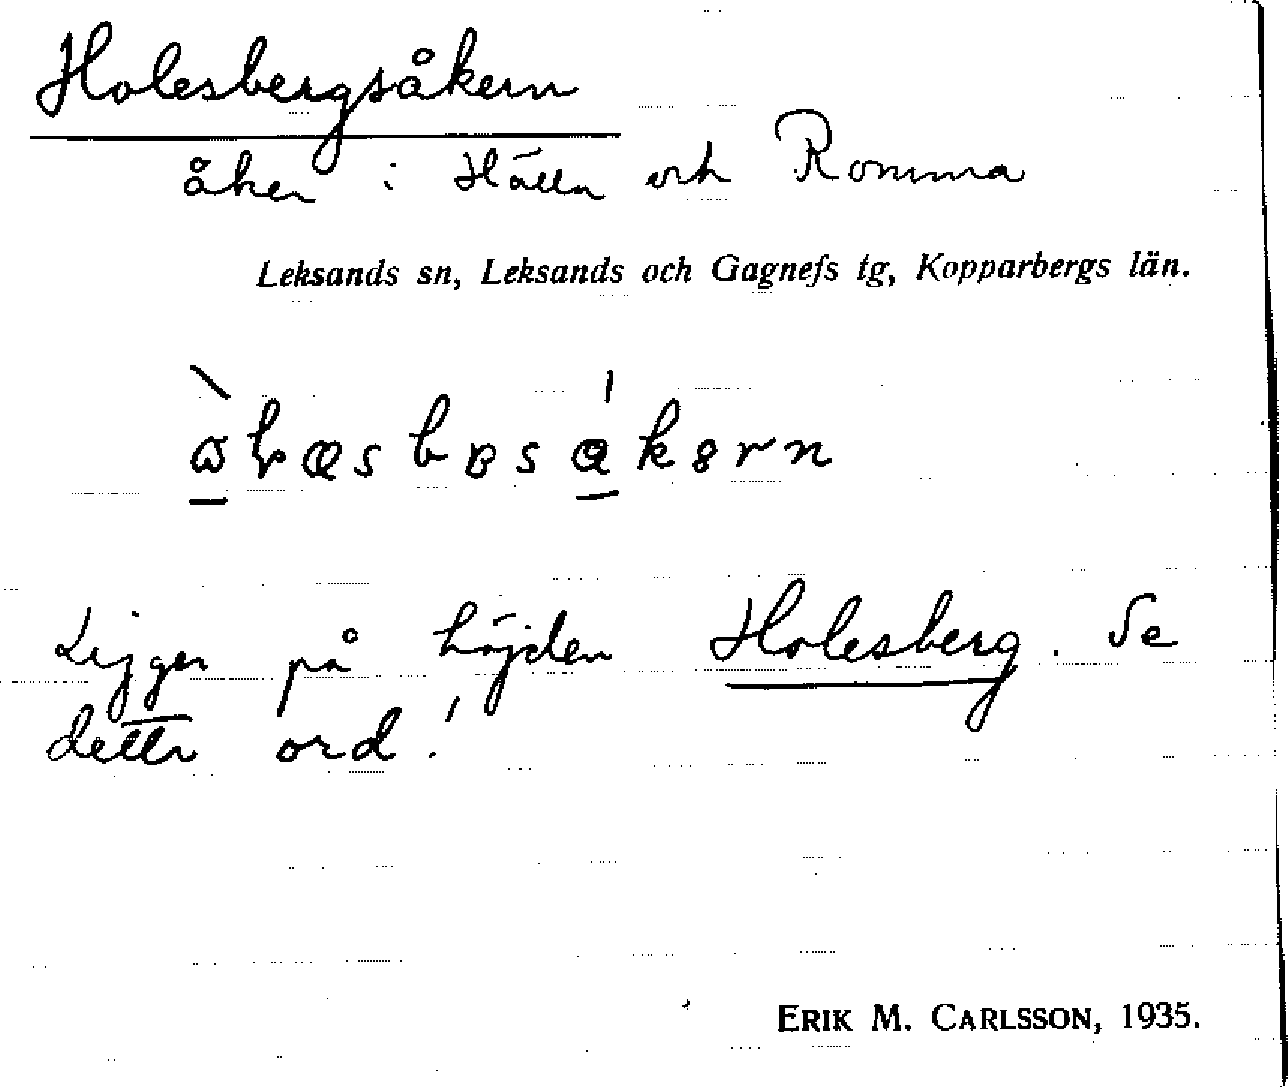 Holesbergsåkern
åker i Hälla och Romma
Leksands sn, Leksands och Gagnefs tg, Kopparbergs län.
Ligger på höjden Holesberg. Se
detta ord!
ERIK M. CARLSSON, 1935.